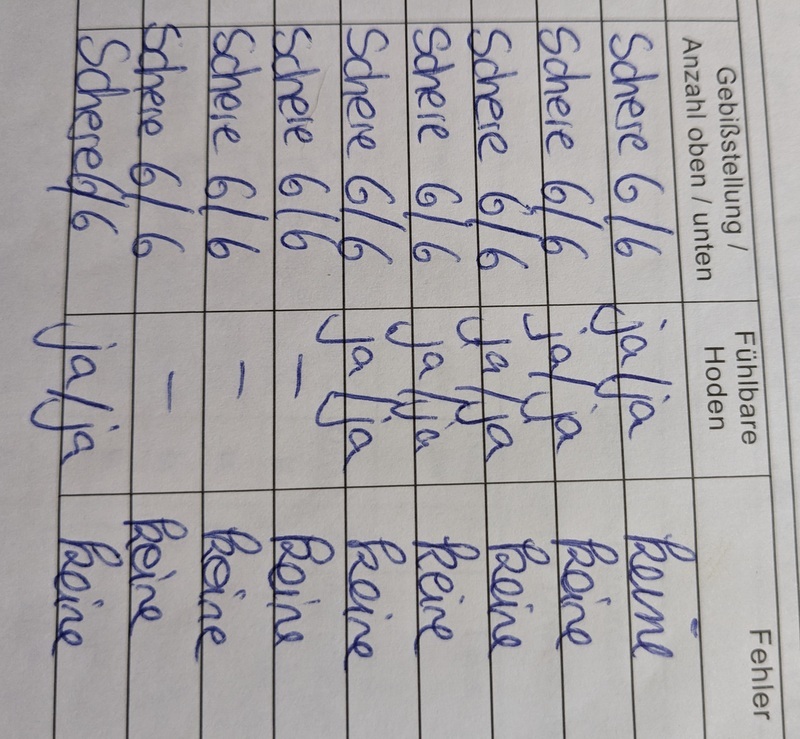 Gebißstellung / Anzahl oben / unten Fühlbare Hoden Fehler
Schere 6/6 ja/ja keine
Schere 6/6 ja/ja keine
Schere 6/6 ja/ja keine
Schere 6/6 ja/ja keine
Schere 6/6 ja/ja keine
Schere 6/6 – keine
Schere 6/6 – keine
Schere 6/6 – keine
Schere 6/6 ja/ja keine